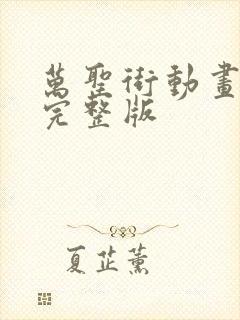 萬聖街動畫
完整版
夏芷薰